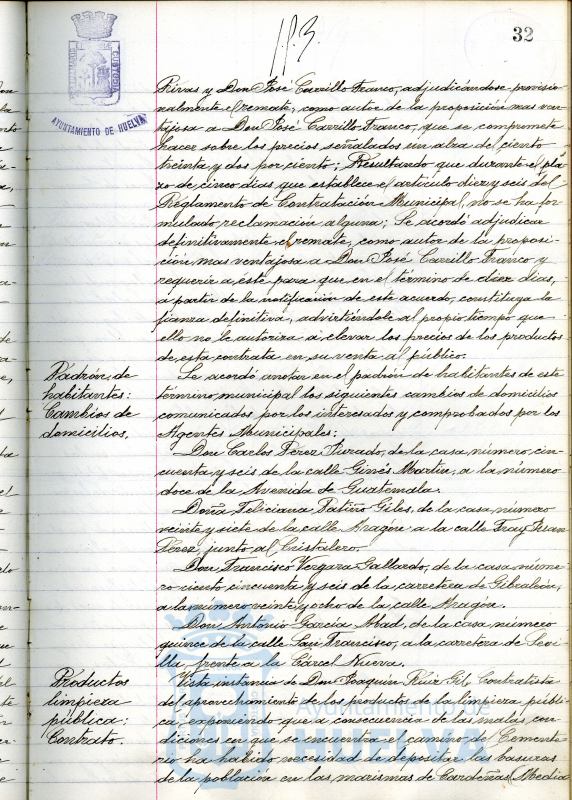 32
AYUNTAMIENTO DE HUELVA
Rivas y Don José Carrillo Franco, adjudicándose provisio-
nalmente el remate, como autor de la proposición mas ven-
tajosa a Don José Carrillo Franco, que se compromete
hacer sobre los precios señalados un alza del ciento
treinta y dos por ciento; Resultando que durante el pla-
zo de cinco días que establece el artículo diez y seis del
Reglamento de Contratación Municipal, no se ha for-
mulado reclamación alguna; Se acordó adjudicar
definitivamente el remate, como autor de la proposi-
ción mas ventajosa a Don José Carrillo Franco y
requerir a éste para que en el término de diez días,
a partir de la notificación de este acuerdo, constituya la
fianza definitiva, advirtiéndole al propio tiempo que
ello no le autoriza a elevar los precios de los productos
de esta contrata en su venta al público.
Padrón de
habitantes:
Cambios de
domicilios.
Se acordó anotar en el padrón de habitantes de este
término municipal los siguientes cambios de domicilios
comunicados por los interesados y comprobados por los
Agentes Municipales:
Don Carlos Pérez Jurado, de la casa número cin-
cuenta y seis de la calle Ginés Martín, a la número
doce de la Avenida de Guatemala.
Doña Feliciana Patiño Giles, de la casa número
veinte y siete de la calle Aragón a la calle Fray Juan
Pérez, junto al Cristalero.
Don Francisco Vergara Gallardo, de la casa núme-
ro ciento cincuenta y seis de la carretera de Gibraleón,
a la número veinte y ocho de la calle Aragón.
Don Antonio García Abad, de la casa número
quince de la calle San Francisco, a la carretera de Sevi-
lla, frente a la Cárcel Nueva.
Productos
limpieza
pública:
Contrato.
Vista instancia de Don Joaquín Ruiz Gil, Contratista
del aprovechamiento de los productos de la limpieza públi-
ca, exponiendo que a consecuencia de las malas con-
diciones en que se encuentra el camino del Cemente-
rio ha habido necesidad de depositar las basuras
de la población en las marismas de Cardeñas (Media
Ayuntamiento de
HUELVA